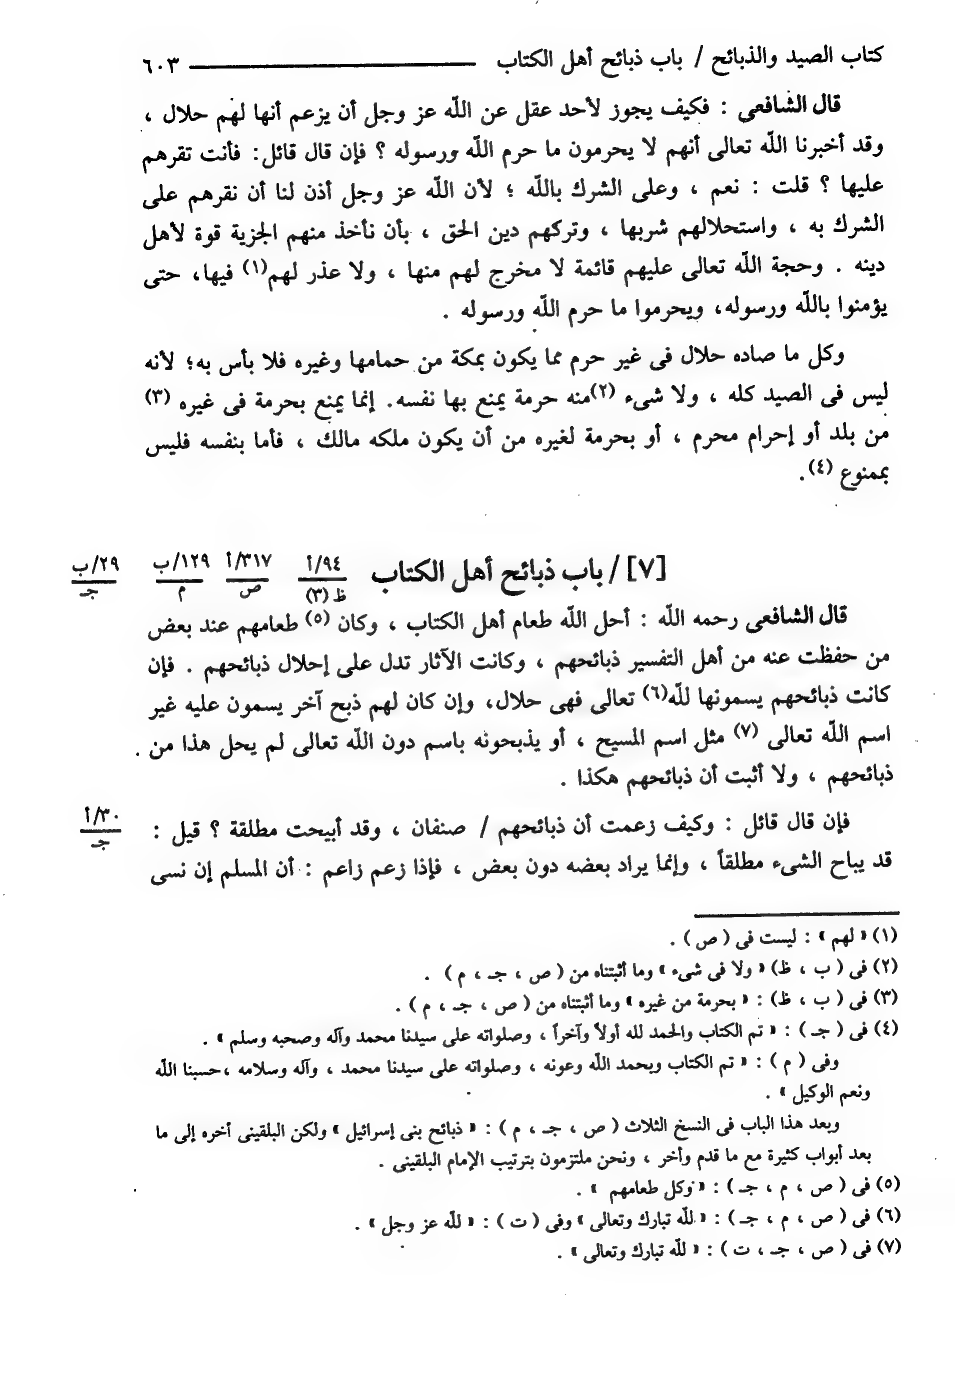 كتاب الصيد والذبائح / باب ذبائح أهل الكتاب ٦٠٣
قال الشافعي : فكيف يجوز لأحد عقل عن اللّه عز وجل أن يزعم أنها لهم حلال ،
وقد أخبرنا اللّه تعالى أنهم لا يحرمون ما حرم اللّه ورسوله ؟ فإن قال قائل: فأنت تقرهم
عليها ؟ قلت : نعم ، وعلى الشرك باللّه ؛ لأن اللّه عز وجل أذن لنا أن نقرهم على
الشرك به ، واستحلالهم شربها ، وتركهم دين الحق ، بأن نأخذ منهم الجزية قوة لأهل
دينه . وحجة اللّه تعالى عليهم قائمة لا مخرج لهم منها ، ولا عذر لهم(١) فيها، حتى
يؤمنوا باللّه ورسوله، ويحرموا ما حرم اللّه ورسوله .
وكل ما صاده حلال فى غير حرم مما يكون بمكة من حمامها وغيره فلا بأس به؛ لأنه
ليس فى الصيد كله ، ولا شىء (٢)منه حرمة يمنع بها نفسه. إنما يمنع بحرمة فى غيره (٣)
من بلد أو إحرام محرم ، أو بحرمة لغيره من أن يكون ملكه مالك ، فأما بنفسه فليس
بممنوع (٤).
[٧] / باب ذبائح أهل الكتاب ٩٤/أ ٣١٧/أ ١٢٩/ب ٢٩/ب
ظ (٣) ص م جـ
قال الشافعى رحمه اللّه : أحل اللّه طعام أهل الكتاب ، وكان (٥) طعامهم عند بعض
من حفظت عنه من أهل التفسير ذبائحهم ، وكانت الآثار تدل على إحلال ذبائحهم . فإن
كانت ذبائحهم يسمونها للّه(٦) تعالى فهى حلال، وإن كان لهم ذبح آخر يسمون عليه غير
اسم اللّه تعالى (٧) مثل اسم المسيح ، أو يذبحونه باسم دون اللّه تعالى لم يحل هذا من
ذبائحهم ، ولا أثبت أن ذبائحهم هكذا .
فإن قال قائل : وكيف زعمت أن ذبائحهم / صنفان ، وقد أبيحت مطلقة ؟ قيل : ٣٠/أ
جـ
قد يباح الشىء مطلقاً ، وإنما يراد بعضه دون بعض ، فإذا زعم زاعم : أن المسلم إن نسى
(١) « لهم » : ليست فى ( ص ) .
(٢) فى ( ب ، ظ) « ولا فى شىء » وما أثبتناه من ( ص ، جـ ، م ) .
(٣) فى ( ب ، ظ) : « بحرمة من غيره » وما أثبتناه من ( ص ، جـ ، م ) .
(٤) فى ( جـ ) : « تم الكتاب والحمد لله أولاً وآخراً ، وصلواته على سيدنا محمد وآله وصحبه وسلم » .
وفى ( م ) : « تم الكتاب وبحمد اللّه وعونه ، وصلواته على سيدنا محمد ، وآله وسلامه ،حسبنا اللّه
ونعم الوكيل » .
وبعد هذا الباب فى النسخ الثلاث ( ص ، جـ ، م ) : « ذبائح بنى إسرائيل » ولكن البلقينى أخره إلى ما
بعد أبواب كثيرة مع ما قدم وأخر ، ونحن ملتزمون بترتيب الإمام البلقينى .
(٥) فى ( ص ، م ، جـ ) : « وكل طعامهم » .
(٦) فى ( ص ، م ، جـ ) : « للّه تبارك وتعالى » وفى ( ت ) : « للّه عز وجل » .
(٧) فى ( ص ، جـ ، ت ) : « للّه تبارك وتعالى » .